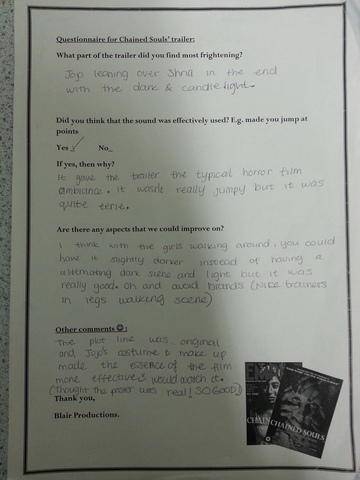 Questionnaire for Chained Souls' trailer:
What part of the trailer did you find most frightening?
Jojo leaning over Shnai in the end
with the dark & candle light.
Did you think that the sound was effectively used? E.g. made you jump at
points
Yes ✓ No_
If yes, then why?
It gave the trailer the typical horror film
ambiance. it wasnt really jumpy but it was
quite eerie.
Are there any aspects that we could improve on?
I think with the girls walking around, you could
have it slightly darker instead of having a
alternating dark scene and light but it was
really good. Oh and avoid brands (Nike trainers
in legs walking scene)
Other comments ☺:
The plot line was original
and Jojo's costume & make up
made the essence of the film
more effective & would watch it.
(thought the poster was real! SO GOOD)
Thank you,
Blair Productions.
CHAINED SOULS